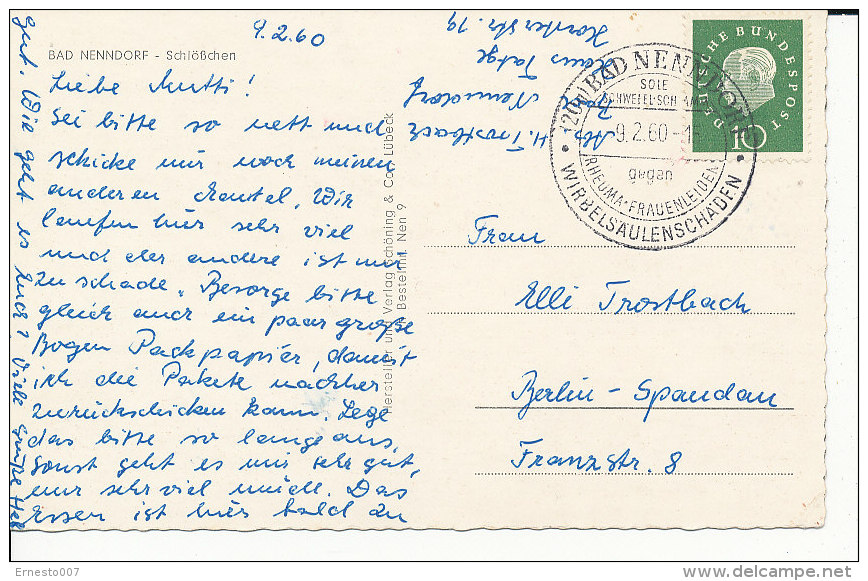 9.2.60
BAD NENNDORF - Schlößchen
Liebe Mutti!
Sei bitte so nett und
schicke mir noch meinen
anderen Mantel. Wir
laufen hier sehr viel
und der andere ist mir
zu schade. Besorge bitte
gleich auch ein paar große
Bogen Packpapier, damit
ich die Pakete nachher
zurückschicken kann. Lege
das bitte so lange aus,
sonst geht es mir sehr gut,
nur sehr viel müde. Das
Essen ist hier bald zu
gut. Wie geht es Euch? Viele Grüße
H. Trostbach
Nenndorf
Haus Tatge
Horster str. 19
Hersteller und Verlag Schöning & Co., Lübeck
Bestellnr. Nen 9
DEUTSCHE BUNDESPOST
10
BAD NENNDORF
SOLE
SCHWEFEL-SCHLAMM
-9.2.60-1
gegen
RHEUMA-FRAUENLEIDEN
WIRBELSÄULENSCHÄDEN
Frau
Elli Trostbach
Berlin-Spandau
Franzstr. 8
Ernesto007
delcampe.net